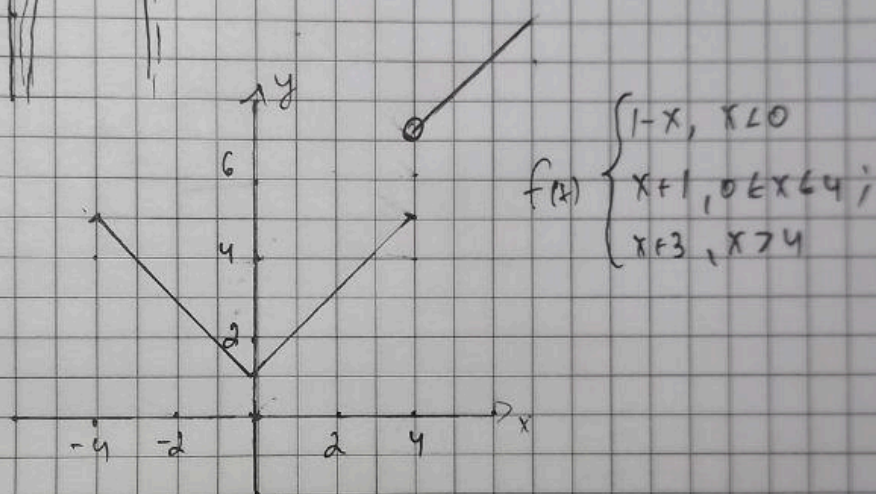 y
6
4
2
-4 -2 2 4 x
f(x) { 1-x, x<0
x+1, 0≤x≤4;
x+3, x>4